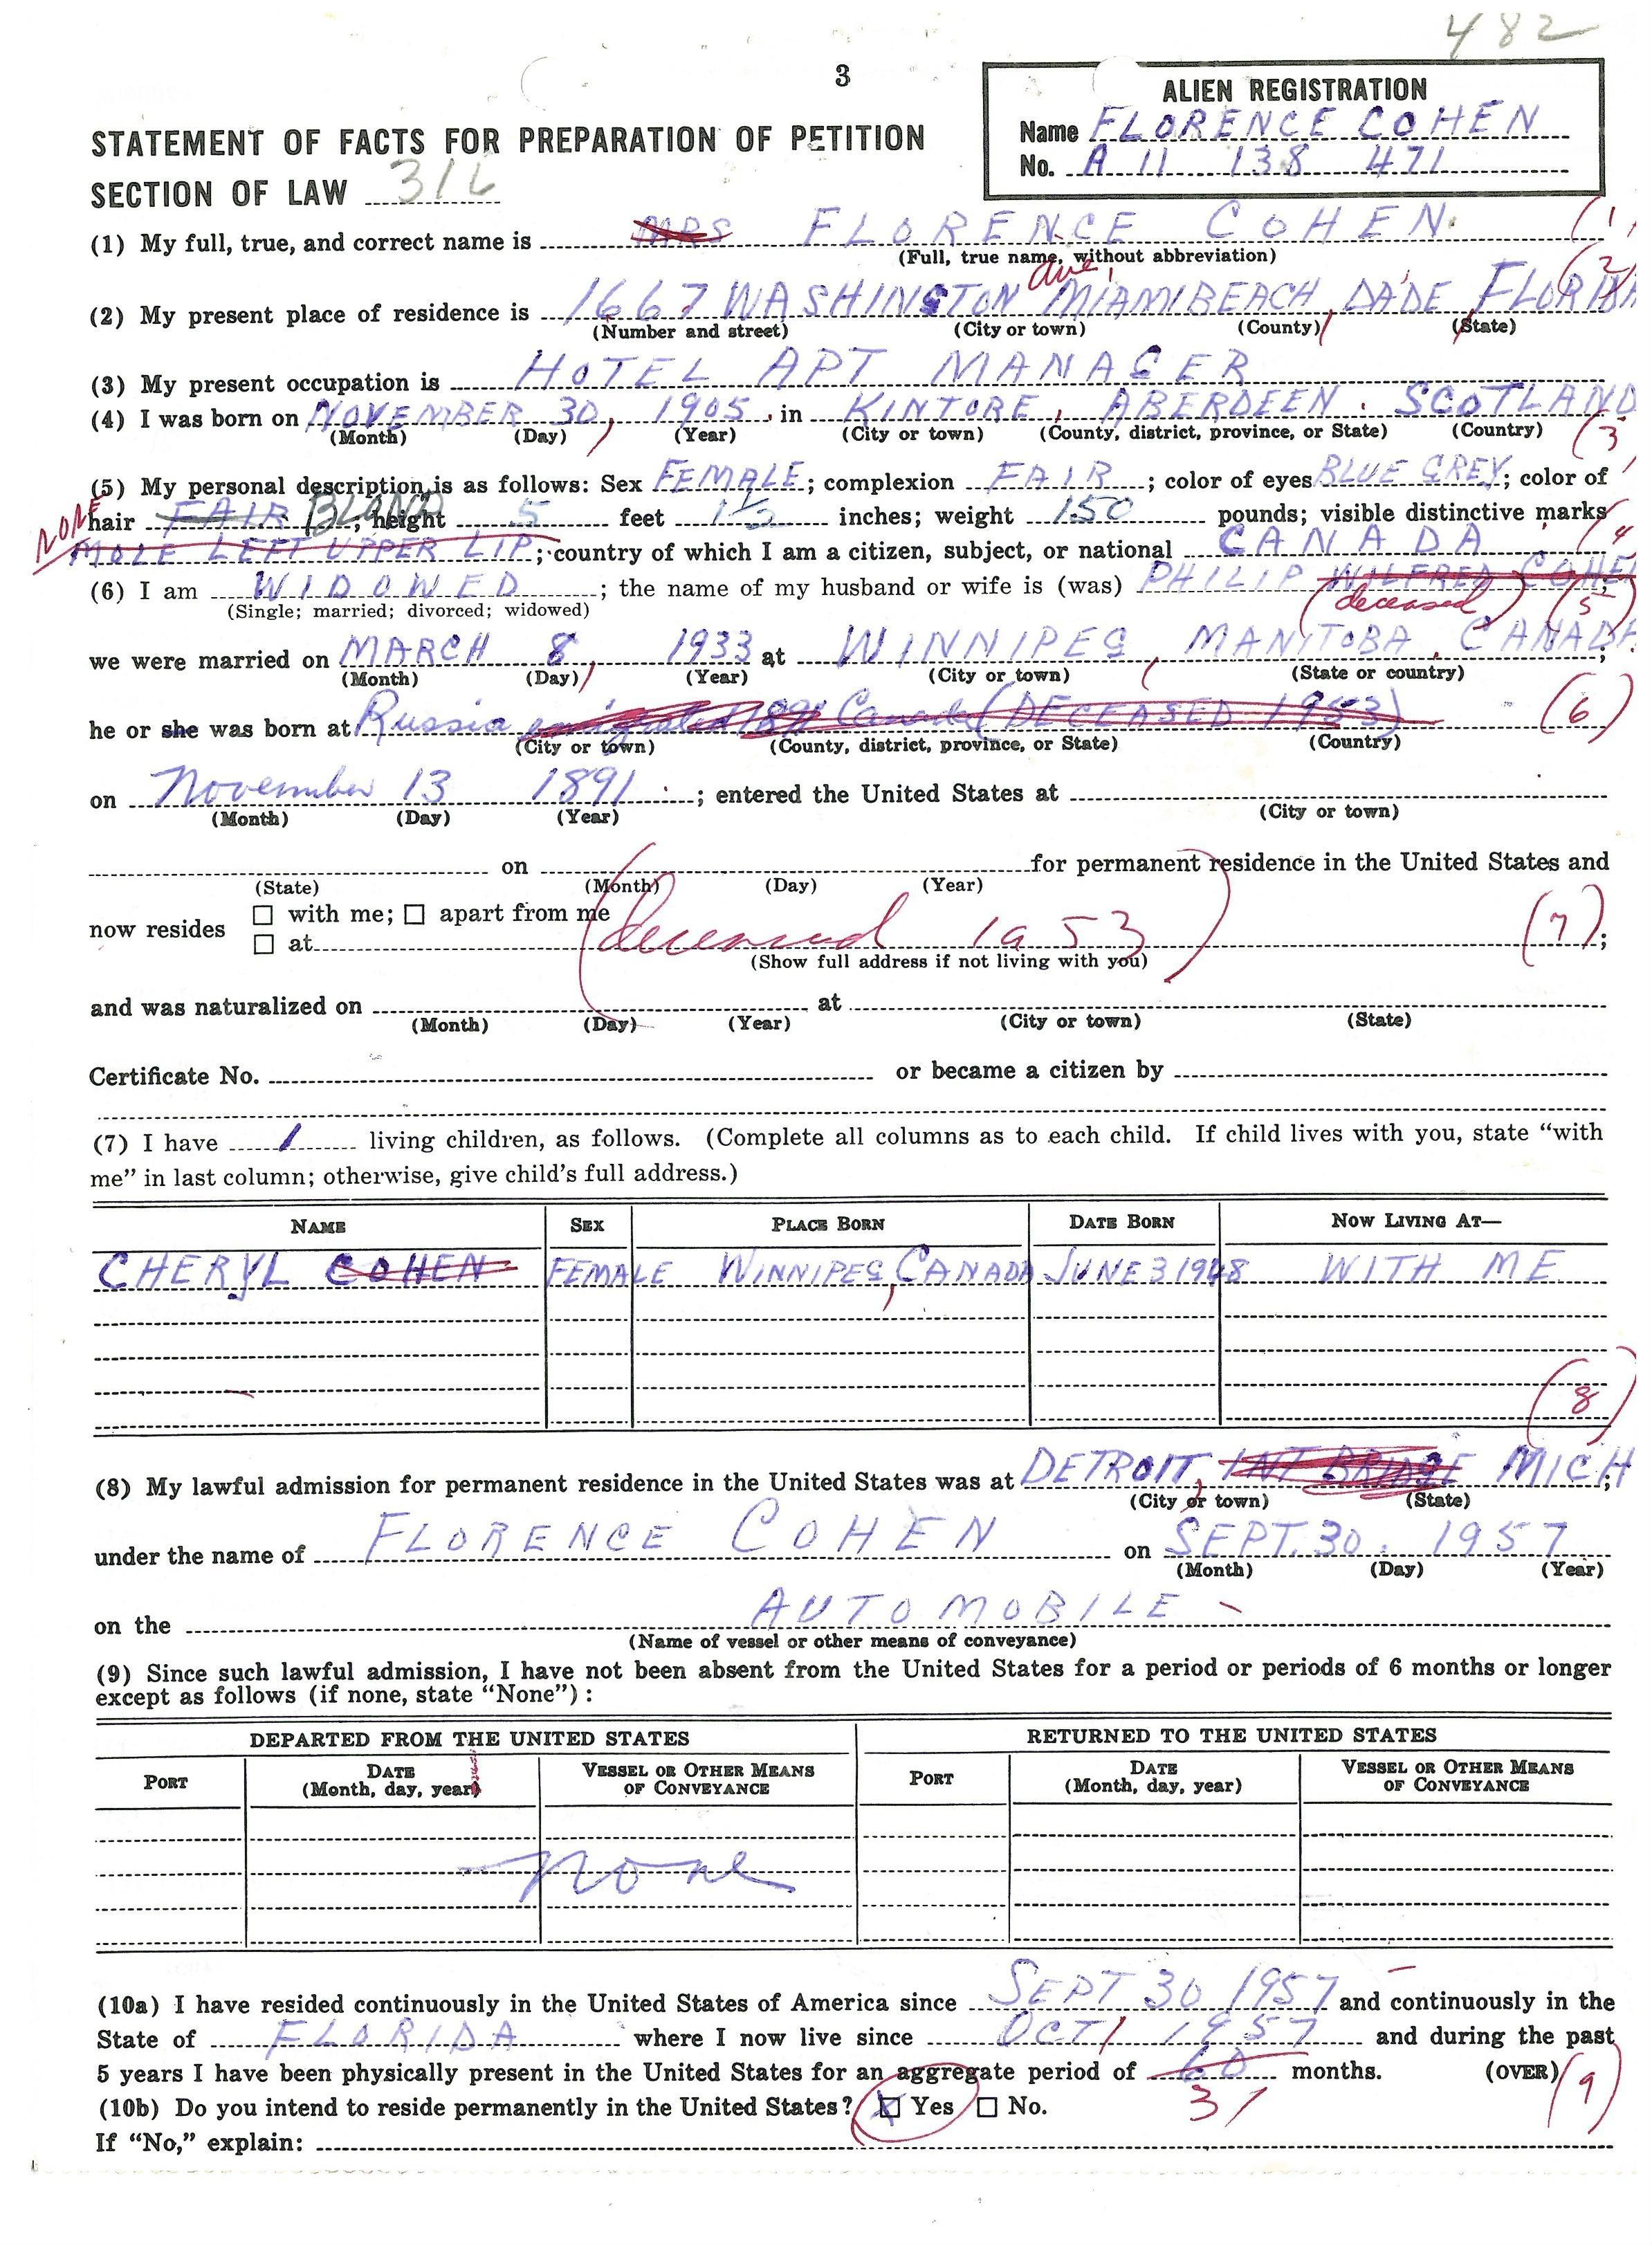 482
3
ALIEN REGISTRATION
Name FLORENCE COHEN
No. A 11 138 471
STATEMENT OF FACTS FOR PREPARATION OF PETITION
SECTION OF LAW 316
(1) My full, true, and correct name is MRS FLORENCE COHEN (1)
(Full, true name, without abbreviation)
ave,
(2) My present place of residence is 1667 WASHINGTON MIAMI BEACH, DADE FLORIDA (2)
(Number and street) (City or town) (County) (State)
(3) My present occupation is HOTEL APT MANAGER
(4) I was born on NOVEMBER 30, 1905, in KINTORE, ABERDEEN. SCOTLAND
(Month) (Day) (Year) (City or town) (County, district, province, or State) (Country) (3)
(5) My personal description is as follows: Sex FEMALE; complexion FAIR; color of eyes BLUE GREY; color of
NONE hair FAIR BLAND; height 5 feet 1 1/2 inches; weight 150 pounds; visible distinctive marks
MOLE LEFT UPPER LIP; country of which I am a citizen, subject, or national CANADA (4
(6) I am WIDOWED; the name of my husband or wife is (was) PHILIP WILFRED COHEN;
(Single; married; divorced; widowed) (deceased) (5)
we were married on MARCH 8, 1933 at WINNIPEG, MANITOBA, CANADA;
(Month) (Day) (Year) (City or town) (State or country)
he or she was born at Russia emigrated 1891 Canada (DECEASED 1953) (6)
(City or town) (County, district, province, or State) (Country)
on November 13 1891; entered the United States at
(Month) (Day) (Year) (City or town)
on for permanent residence in the United States and
(State) (Month) (Day) (Year)
now resides ☐ with me; ☐ apart from me
☐ at (deceased 1953) (7);
(Show full address if not living with you)
and was naturalized on at
(Month) (Day) (Year) (City or town) (State)
Certificate No. or became a citizen by
(7) I have 1 living children, as follows. (Complete all columns as to each child. If child lives with you, state “with
me” in last column; otherwise, give child’s full address.)
NAME SEX PLACE BORN DATE BORN NOW LIVING AT—
CHERYL COHEN FEMALE WINNIPEG, CANADA JUNE 3 1948 WITH ME
(8)
(8) My lawful admission for permanent residence in the United States was at DETROIT, INT BRIDGE MICH;
(City or town) (State)
under the name of FLORENCE COHEN on SEPT. 30. 1957
(Month) (Day) (Year)
on the AUTOMOBILE
(Name of vessel or other means of conveyance)
(9) Since such lawful admission, I have not been absent from the United States for a period or periods of 6 months or longer
except as follows (if none, state “None”):
DEPARTED FROM THE UNITED STATES RETURNED TO THE UNITED STATES
PORT DATE (Month, day, year) VESSEL OR OTHER MEANS OF CONVEYANCE PORT DATE (Month, day, year) VESSEL OR OTHER MEANS OF CONVEYANCE
none
(10a) I have resided continuously in the United States of America since SEPT 30 1957 and continuously in the
State of FLORIDA where I now live since OCT 1 1957 and during the past
5 years I have been physically present in the United States for an aggregate period of 60 months. (OVER) (9)
(10b) Do you intend to reside permanently in the United States? ☒ Yes ☐ No. 31
If “No,” explain: